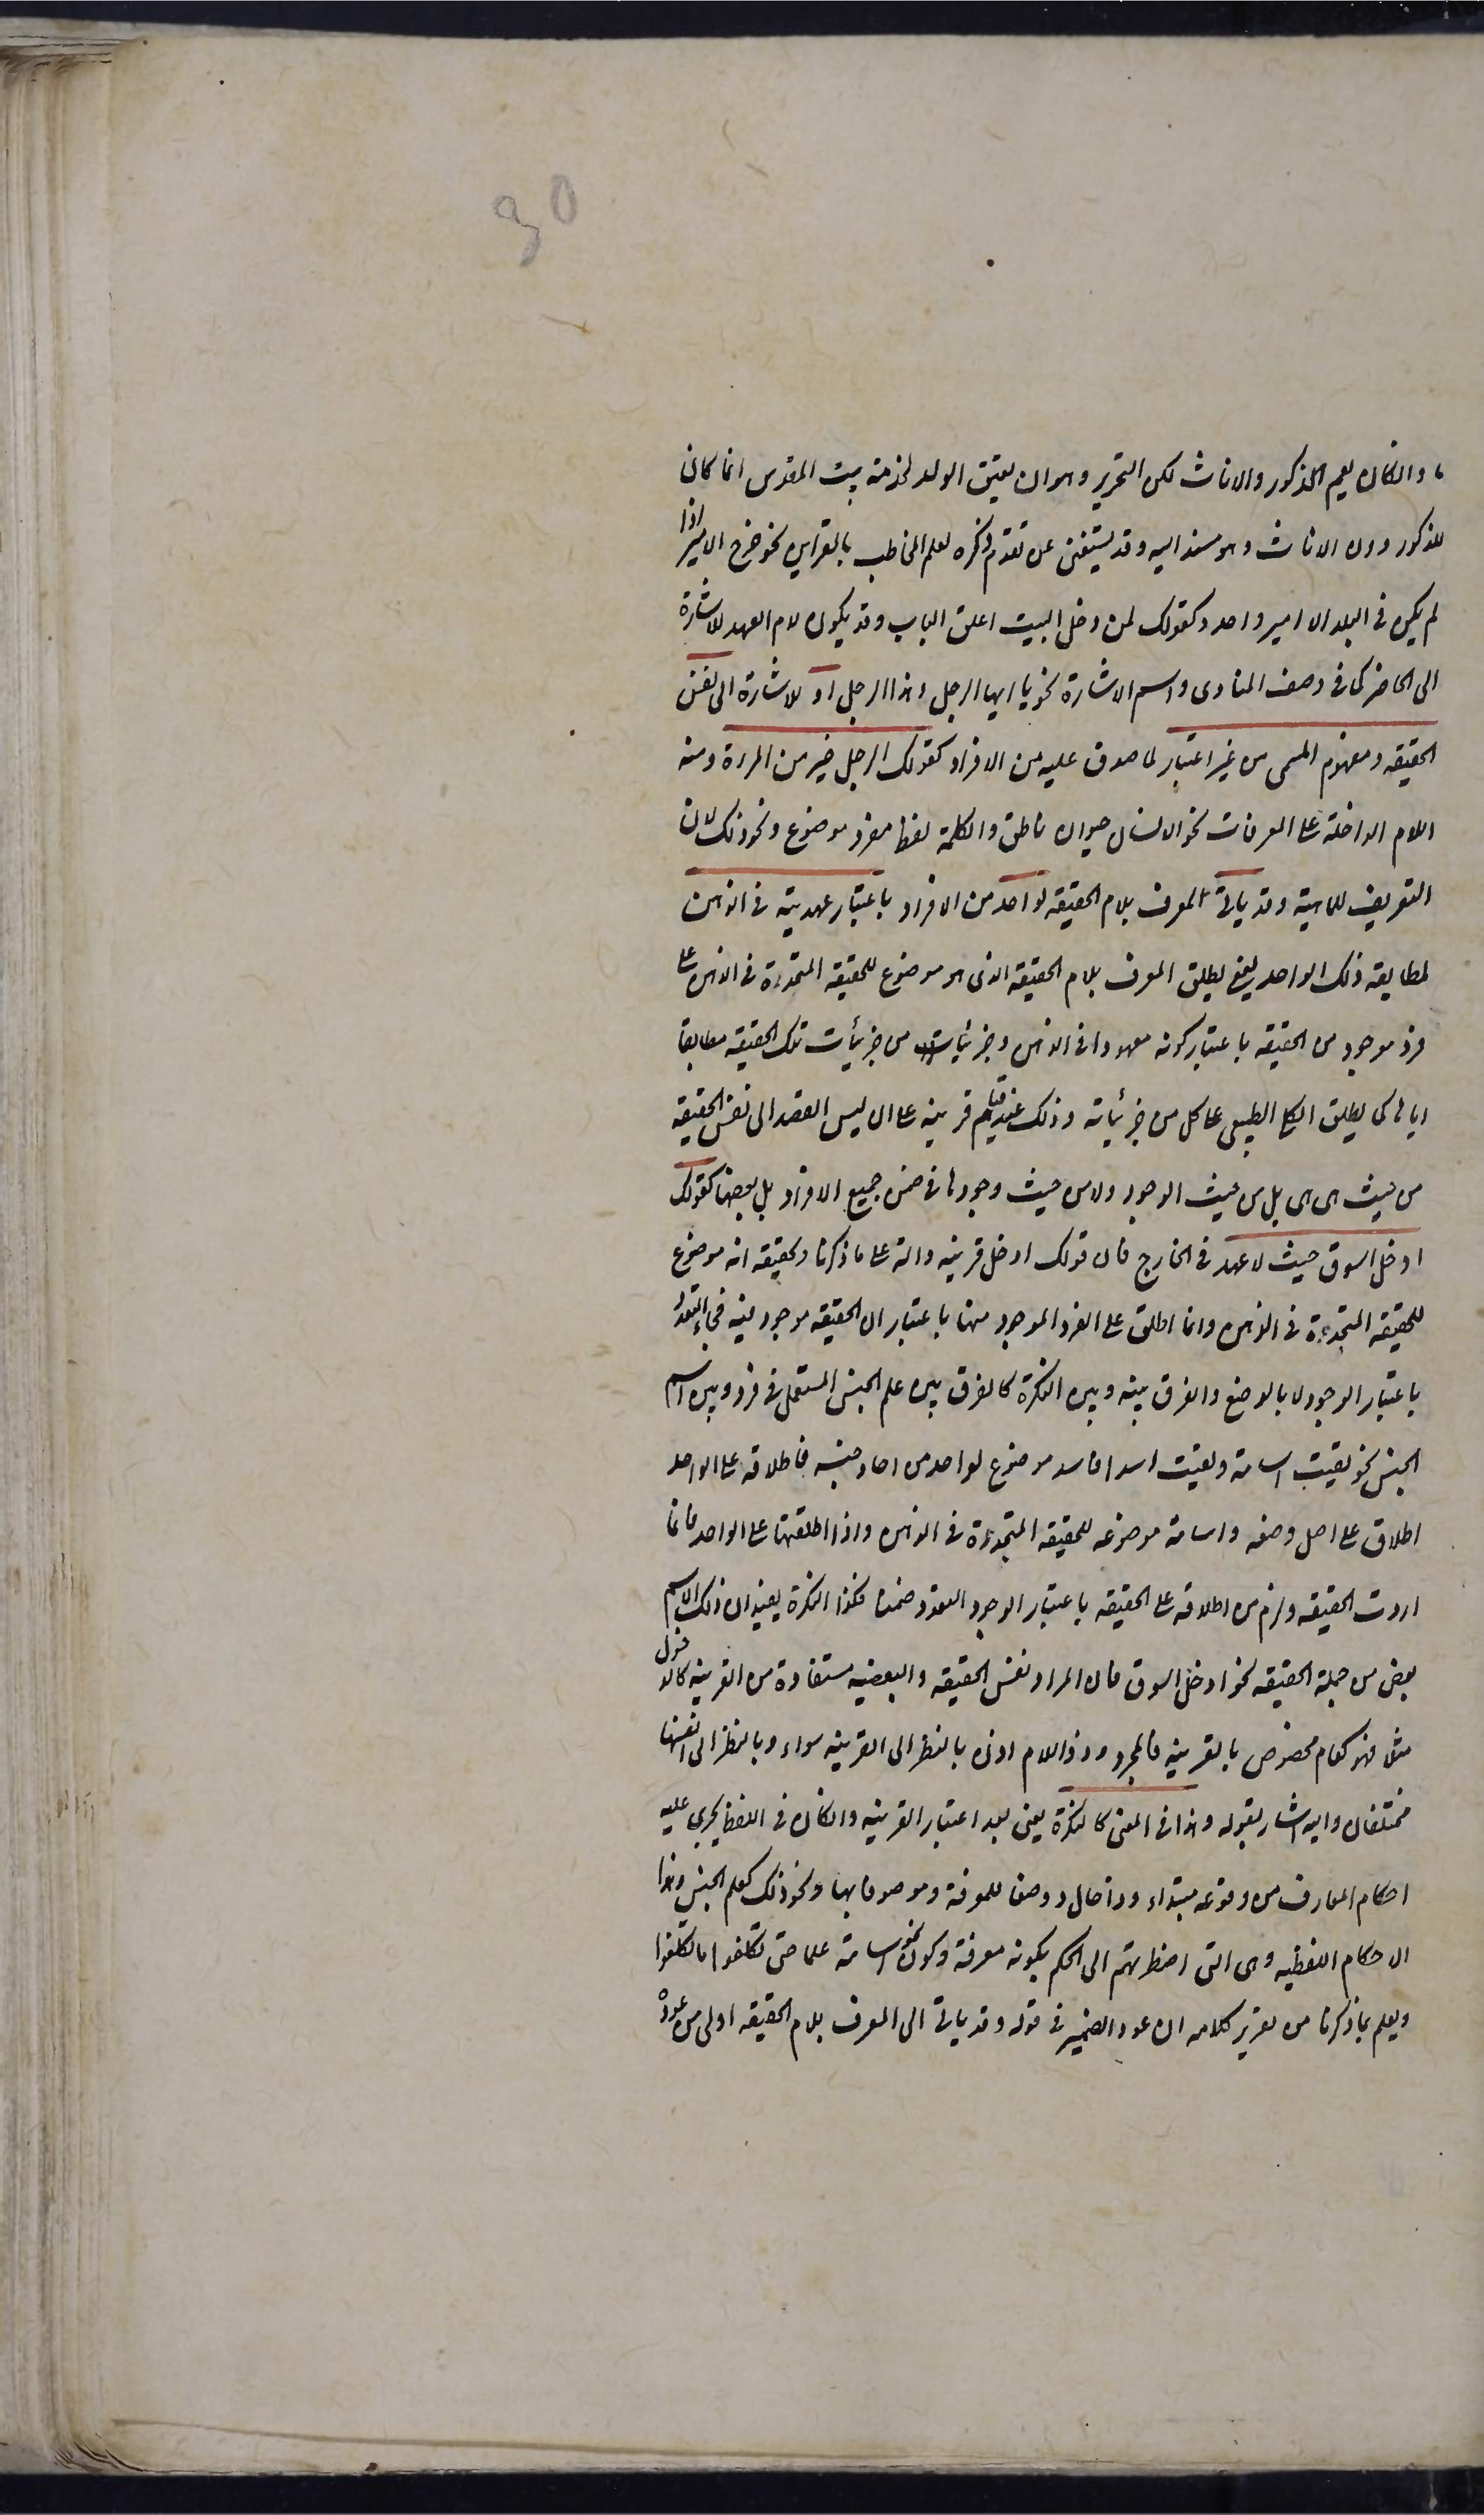 ما والكان يعم الذكور والاناث لكن التحرير وهو ان يعتق الولد لخدمة بيت المقدس انما كان
للذكور دون الاناث وهو مسند اليه وقد يستغنى عن تقدم ذكره لعلم المخاطب بالقراين نحو خرج الامير اذا
لم يكن في البلد الا امير واحد وكقولك لمن دخل البيت اغلق الباب وقد يكون لام العهد للاشارة
الى الحاضر كما في وصف المنادى واسم الاشارة نحو يا ايها الرجل وهذا الرجل او للاشارة الى نفس
الحقيقه ومفهوم المسمى من غير اعتبار لما صدق عليه من الافراد كقولك الرجل خير من المراة ومنه
اللام الداخلة على المعرفات نحو الانسان حيوان ناطق والكلمة لفظ مفرد موضوع ونحو ذلك لان
التعريف للماهية وقد ياتي المعرف بلام الحقيقه لواحد من الافراد باعتبار عهديته في الذهن
لمطابقه ذلك الواحد يعني يطلق المعرف بلام الحقيقه الذي هو موضوع للحقيقه المتحدة في الذهن على
فرد موجود من الحقيقه باعتبار كونه معهودا في الذهن وجزئيا من جزئيات تلك الحقيقه مطابقا
اياها كما يطلق الكلي الطبيعي على كل من جزئياته وذلك عند قيام قرينه على ان ليس القصد الى نفس الحقيقه
من حيث هي هي بل من حيث الوجود ولا من حيث وجودها في ضمن جميع الافراد بل بعضها كقولك
ادخل السوق حيث لا عهد في الخارج فان قولك ادخل قرينه دالة على ما ذكرنا وتحقيقه انه موضوع
للحقيقه المتحدة في الذهن وانما اطلق على الفرد الموجود منها باعتبار ان الحقيقه موجود فيه فجاء التعدد
باعتبار الوجود لا بالوضع والفرق بينه وبين النكرة كالفرق بين علم الجنس المستعمل في فرد وبين اسم
الجنس نحو لقيت اسامة ولقيت اسدا فاسد موضوع لواحد من احاد جنسه فاطلاقه على الواحد
اطلاق على اصل وضعه واسامة موضوعه للحقيقه المتحدة في الذهن واذا اطلقتها على الواحد فانما
اردت الحقيقه ولزم من اطلاقه على الحقيقه باعتبار الوجود التعدد ضمنا فكذا النكرة يفيد ان ذلك الاسم
بعض من جملة الحقيقه نحو ادخل السوق فان المراد نفس الحقيقه والبعضيه مستفادة من القرينه كالدخول
مثلا فهو كعام مخصوص بالقرينه فالمجرد وذو اللام اذن بالنظر الى القرينه سواء وبالنظر الى انفسهما
مختلفان واليه اشار بقوله وهذا في المعنى كالنكرة يعني بعد اعتبار القرينه والكان في اللفظ يجري عليه
احكام المعارف من وقوعه مبتداء وذا حال ووصفا للمعرفة وموصوفا بها ونحو ذلك كعلم الجنس وهذا
الاحكام اللفظيه وهي التي اضطرتهم الى الحكم بكونه معرفة وكون نحو اسامة علما حتى تكلفوا ما تكلفوا
ويعلم بما ذكرنا من تقرير كلامه ان عود الضمير في قوله وقد ياتي الى المعرف بلام الحقيقه اولى من عوده